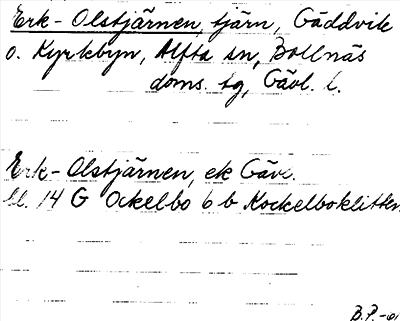 Erk-Olstjärnen, tjärn, Gäddvik
o. Kyrkbyn, Alfta sn, Bollnäs
doms. tg, Gävl. l.
Erk-Olstjärnen, ek Gävl.
bl. 14 G Ockelbo 6 b Kockelboklitten
B.P.-61